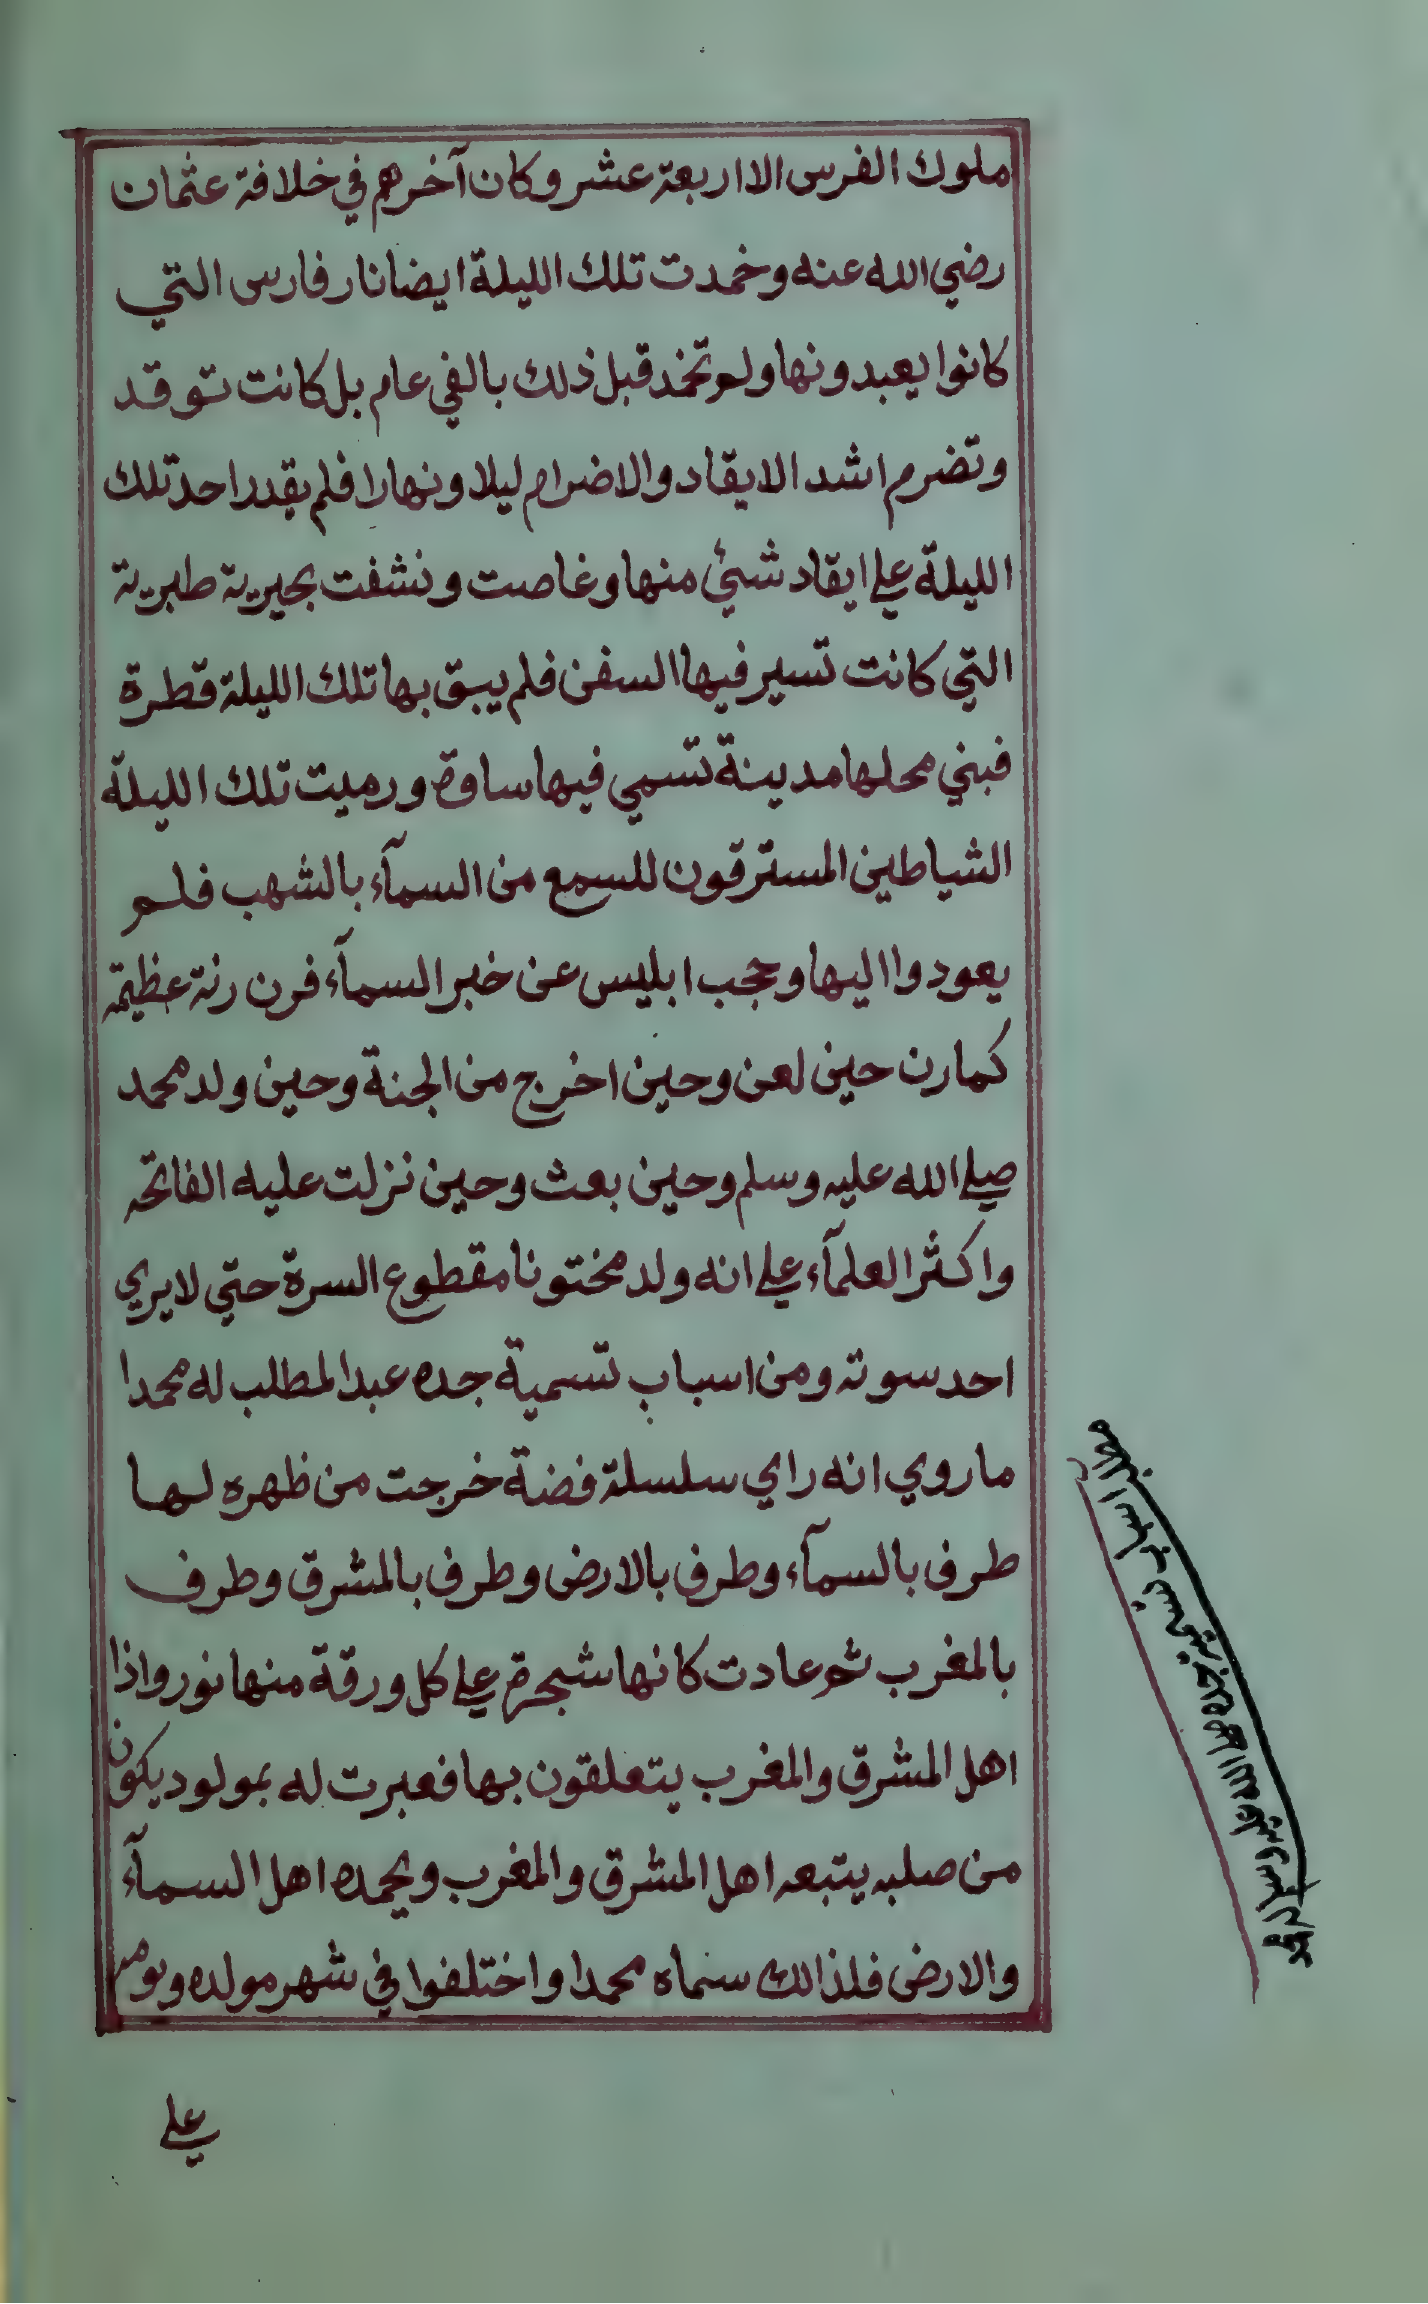 ملوك الفرس الا اربعة عشر وكان آخرهم في خلافة عثمان
رضي الله عنه وخمدت تلك الليلة ايضا نار فارس التي
كانوا يعبدونها ولم تخمد قبل ذلك بالفي عام بل كانت توقد
وتضرم اشد الايقاد والاضرام ليلا ونهارا فلم يقدر احد تلك
الليلة علي ايقاد شئ منها وغاصت ونشفت بحيرية طبرية
التي كانت تسير فيها السفن فلم يبق بها تلك الليلة قطرة
فبني محلها مدينة تسمي فيها ساوة ورميت تلك الليلة
الشياطين المسترقون للسمع من السمآء بالشهب فلم
يعودوا اليها وحجب ابليس عن خبر السمآء فرن رنة عظيمة
كما رن حين لعن وحين اخرج من الجنة وحين ولد محمد
صلي الله عليه وسلم وحين بعث وحين نزلت عليه الفاتحة
واكثر العلمآء علي انه ولد مختونا مقطوع السرة حتي لا يري
احد سوته ومن اسباب تسمية جده عبد المطلب له محمدا
ما روي انه راي سلسلة فضة خرجت من ظهره لها
طرف بالسمآء وطرف بالارض وطرف بالمشرق وطرف
بالمغرب ثم عادت كانها شجرة علي كل ورقة منها نور واذا
اهل المشرق والمغرب يتعلقون بها فعبرت له بمولود يكون
من صلبه يتبعه اهل المشرق والمغرب ويحمده اهل السمآء
والارض فلذالك سماه محمدا واختلفوا في شهر مولده ويومه
علي
اسباب تسمية جده صلي الله عليه وسلم له محمد